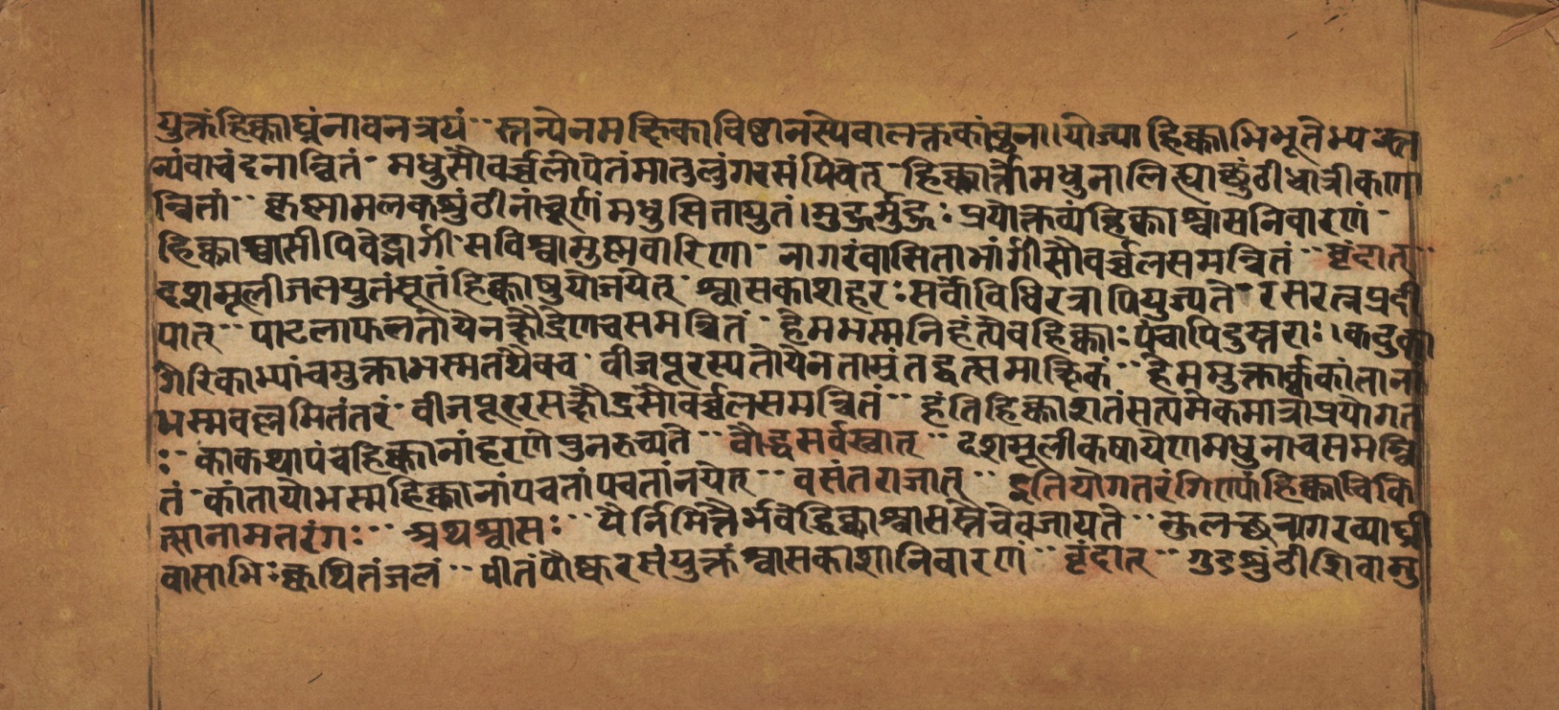 युक्तंहिक्काघ्नंनावनत्रयं ॥ स्तन्येनमक्षिकाविष्ठानस्यैवालक्तकांबुना। योज्याहिक्काभिभूतेभ्यःस्त
न्यंवाचंदनान्वितं॰ मधुसौवर्च्चलोपेतंमातुलुंगरसंपिबेत् ॰हिक्कार्त्तोमधुनालिह्याछुंठीधात्रीकणा
न्वितां ॥ कृष्णामलकशुंठीनांचूर्णंमधुसितायुतं। मुहुर्मुहुः प्रयोक्तव्यंहिक्काश्वासनिवारणं॰
हिक्काश्वासीपिबेद्भार्गीसविश्वामुष्णवारिणा॰ नागरंवासिताभार्गीसौवर्च्चलसमन्वितं ॥ वृंदात् ॥
दशमूलीजलयुतंसूतंहिक्कासुयोजयेत् ॰श्वासकाशहरःसर्वोविधिरत्रापियुज्यते॰ रसरत्नप्रदी
पात् ॥ पाटलाफलतोयेनक्षौद्रेणचसमन्वितं ॰हेमभस्मनिहंत्येवहिक्काःपंचापिदुस्तराः। कटुका
गैरिकाभ्यांचमुक्ताभस्मतथैवच॰ वीजपूरस्यतोयेनताम्रंतद्वत्समाक्षिकं ॥ हेममुक्तार्क्ककांतानां
भस्मवल्लमितंतरं॰ वीजपूररसक्षौद्रसौवर्च्चलसमन्वितं ॥ हंतिहिक्काशतंसत्यमेकमात्राप्रयोगत
ः॰ काकथापंचहिक्कानांहरणेपुनरुच्यते ॥ बौद्धसर्वस्वात् ॥ दशमूलीकषायेणमधुनाचसमन्वि
तं॰ कांतायोभस्महिक्कानांपचतांपचतांनयेत् ॥ वसंतराजात् ॥ इतियोगतरंगिण्यांहिक्काचिकि
त्सानामतरंगः ॥ अथश्वासः ॥ यैर्निमित्तैर्भवेद्धिक्काश्वासस्तैरेवजायते ॥ कुलत्थनागरव्याघ्री
वासाभिःक्वथितंजलं ॥ पीतंपौष्करसंयुक्तंश्वासकाशनिवारणं ॥ वृंदात् ॥ गुडशुंठीशिवामु